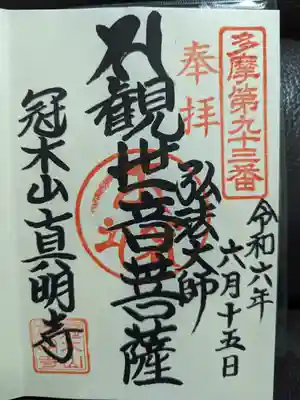 多摩第九十三番
奉拝
令和六年
六月十五日
弘法大師
観世音菩薩
冠木山真明寺